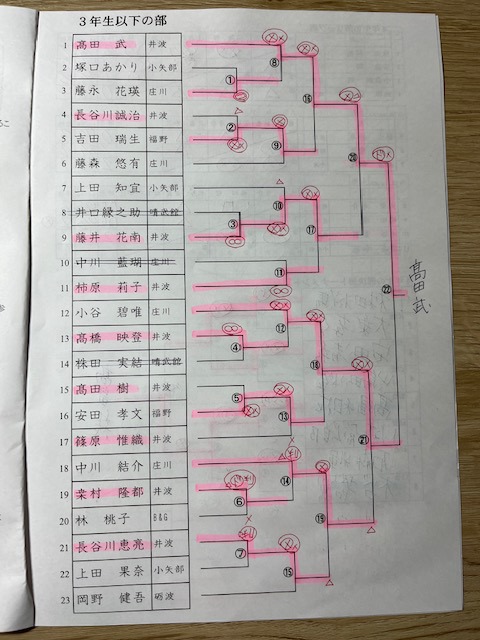 3年生以下の部
1 髙田 武 井波
2 塚口あかり 小矢部
3 藤永 花瑛 庄川
4 長谷川誠治 井波
5 吉田 瑞生 福野
6 藤森 悠有 庄川
7 上田 知宜 小矢部
8 井口縁之助 晴武館
9 藤井 花南 井波
10 中川 藍瑚 庄川
11 柿原 莉子 井波
12 小谷 碧唯 庄川
13 髙橋 映登 井波
14 株田 実結 晴武館
15 髙田 樹 井波
16 安田 孝文 福野
17 篠原 惟織 井波
18 中川 結介 庄川
19 葉村 隆都 井波
20 林 桃子 B&G
21 長谷川恵亮 井波
22 上田 果奈 小矢部
23 岡野 健吾 砺波
①
②
③
④
⑤
⑥
⑦
⑧
⑨
⑩
⑪
⑫
⑬
⑭
⑮
⑯
⑰
⑱
⑲
⑳
㉑
㉒
髙田 武